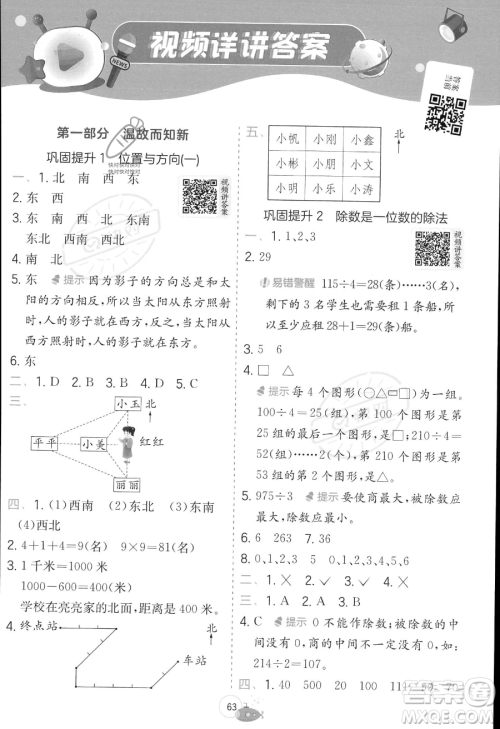 视频详讲答案
NEWS
答案扫描
第一部分 温故而知新
巩固提升1 位置与方向(一)
视频讲答案
一、1.北 南 西 东
2.东 西
3.东 南 东北 西北 东南
东北 西北 西南
4.南 北
5.东 提示 因为影子的方向总是和太
阳的方向相反,所以当太阳从东方升起
时,人的影子就在西方,反过来,当太阳
在西方时,人的影子就在东方。
6.东
二、1.D 2.D 3.C 4.C
三、
小玉 北
平平 小美 红红
丽丽
四、1.(1)西南 (2)东北 (3)东南
(4)西北
2.4+1+4=9(名) 9×9=81(名)
3.1千米=1000米
1000-600=400(米)
学校在亮亮家的北面,距离是400米。
4.终点站 北
车站
五、
北
小彬 小刚 小鑫
小彬 小朋 小方
小明 小乐 小涛
巩固提升2 除数是一位数的除法
视频讲答案
一、1.1,2,3
2.29
易错警醒 115÷4=28(条)……3(名),
剩下的3名学生也需要租1条船,所
以共需要租28+1=29(条)船。
3.5 6
4.□ △
提示 每4个图形(○△□□)为一组。
100÷4=25(组),第100个图形是第
25组的最后一个图形,是□;210÷4=
52(组)……2(个),第210个图形是第
53组的第2个图形,是△。
5.975÷3 提示 要使商最大,被除数应
最大,除数应最小。
6.6 263 7.36
8.0,1,2,3,4,5
二、1.× 2.× 3.√
三、1.B 2.A 3.A
4.C 提示 0不能作除数;被除数的中
间没有0,商的中间可能有0,如
214÷2=107。
四、1.40 500 20 100
63